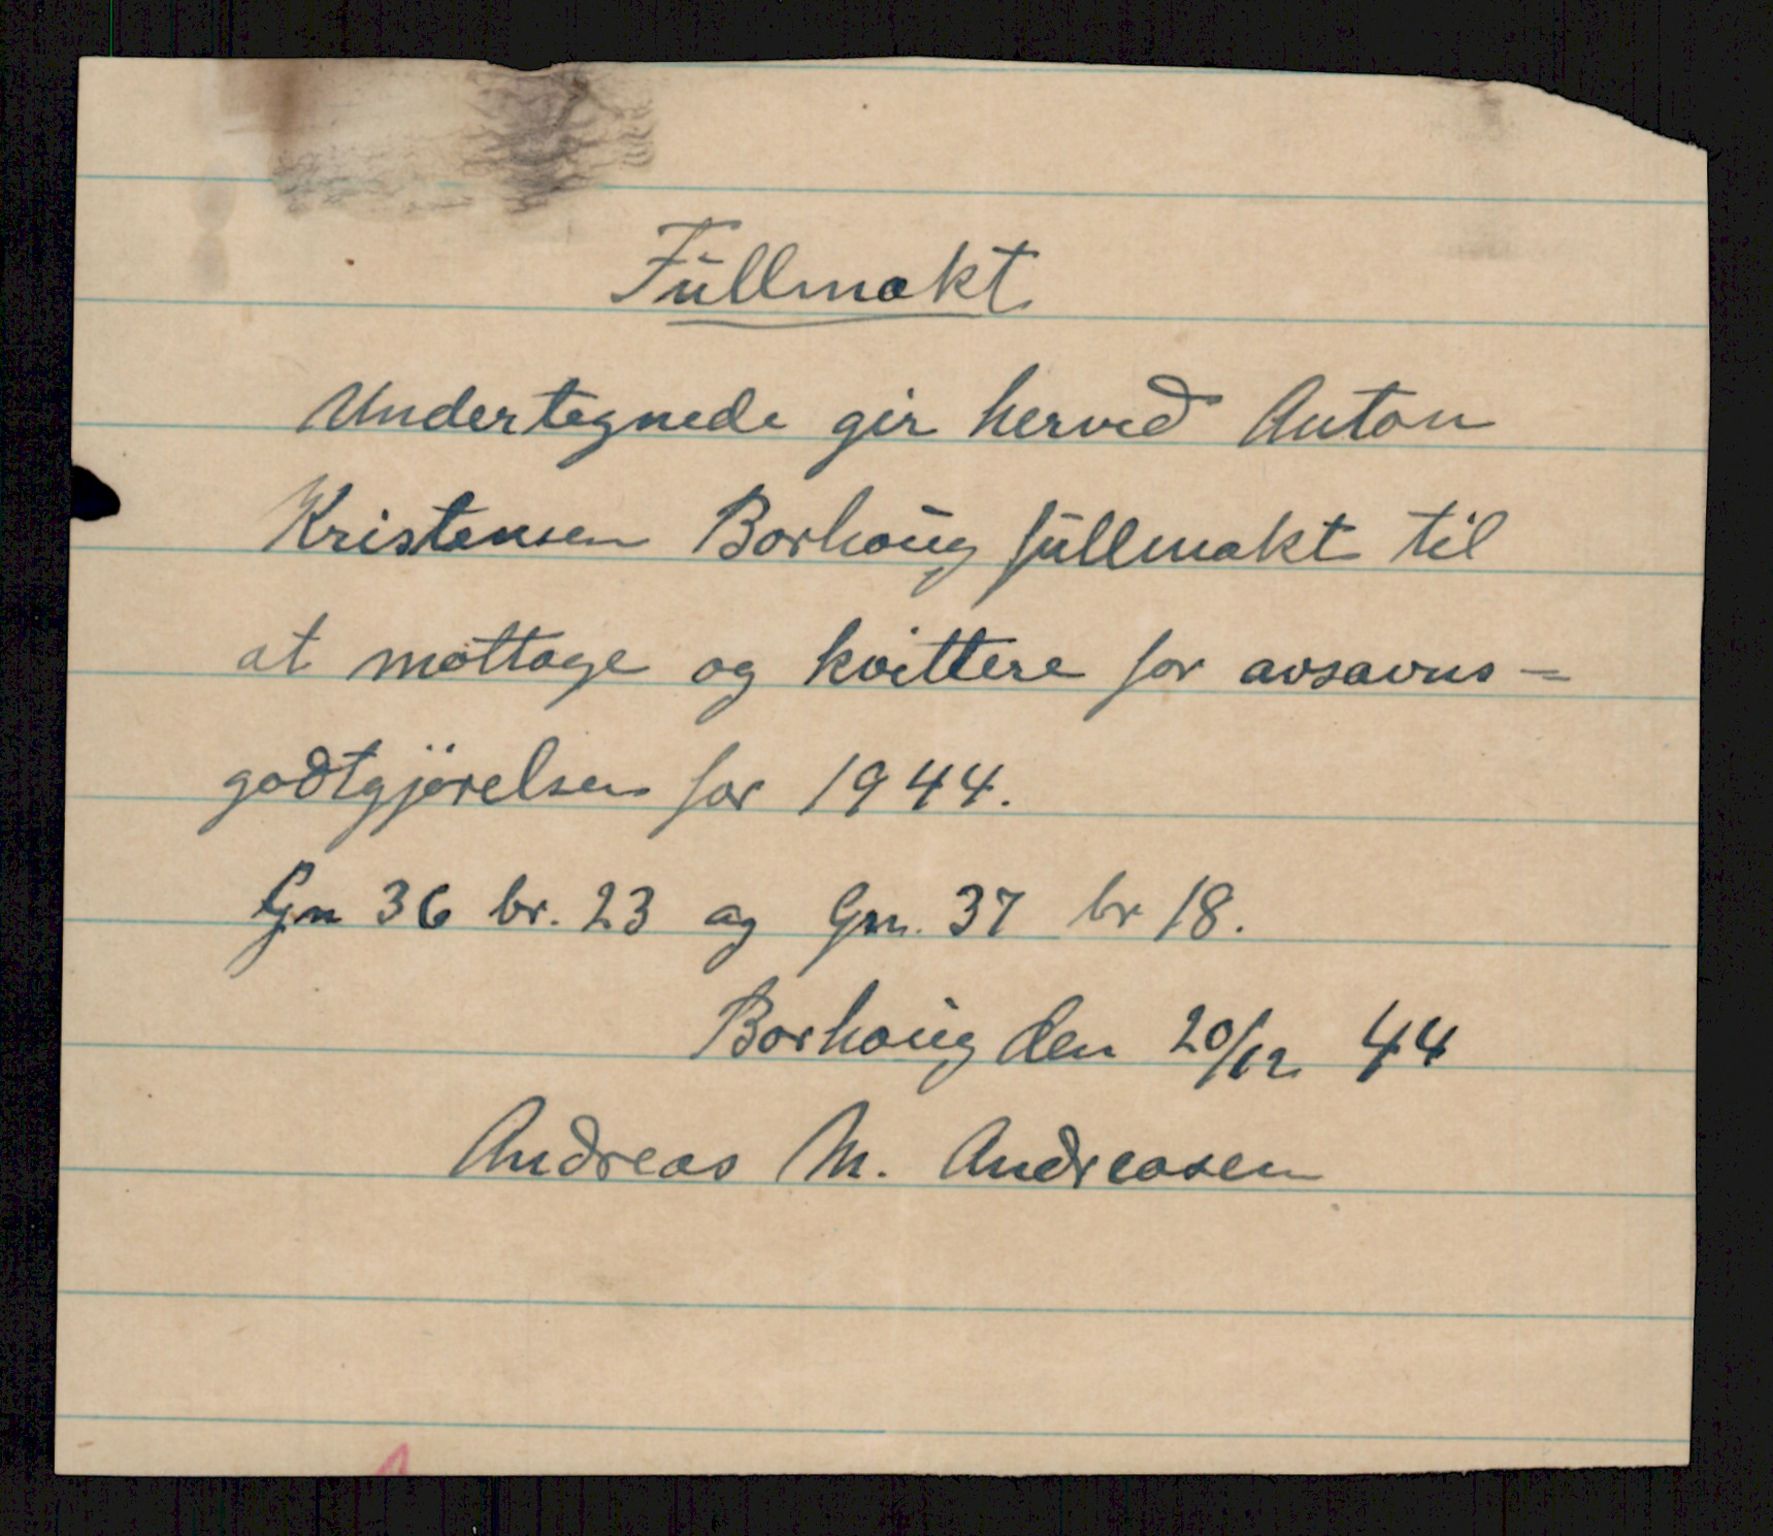 Fullmakt
Undertegnede gir herved Anton
Kristensen Borhaug fullmakt til
at mottage og kvittere for avsavns=
godtgjørelsen for 1944.
Gn 36 br. 23 og Gn. 37 br 18.
Borhaug den 20/12 44
Andreas M. Andreasen